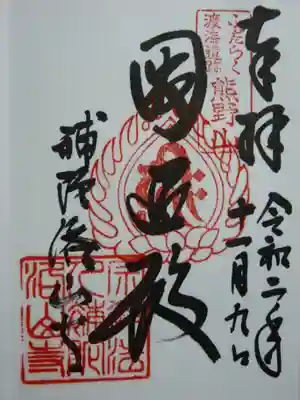 奉拝
令和二年
十一月九日
ふたらく
渡海遺蹟
熊野
圓通殿
補陀洛山寺